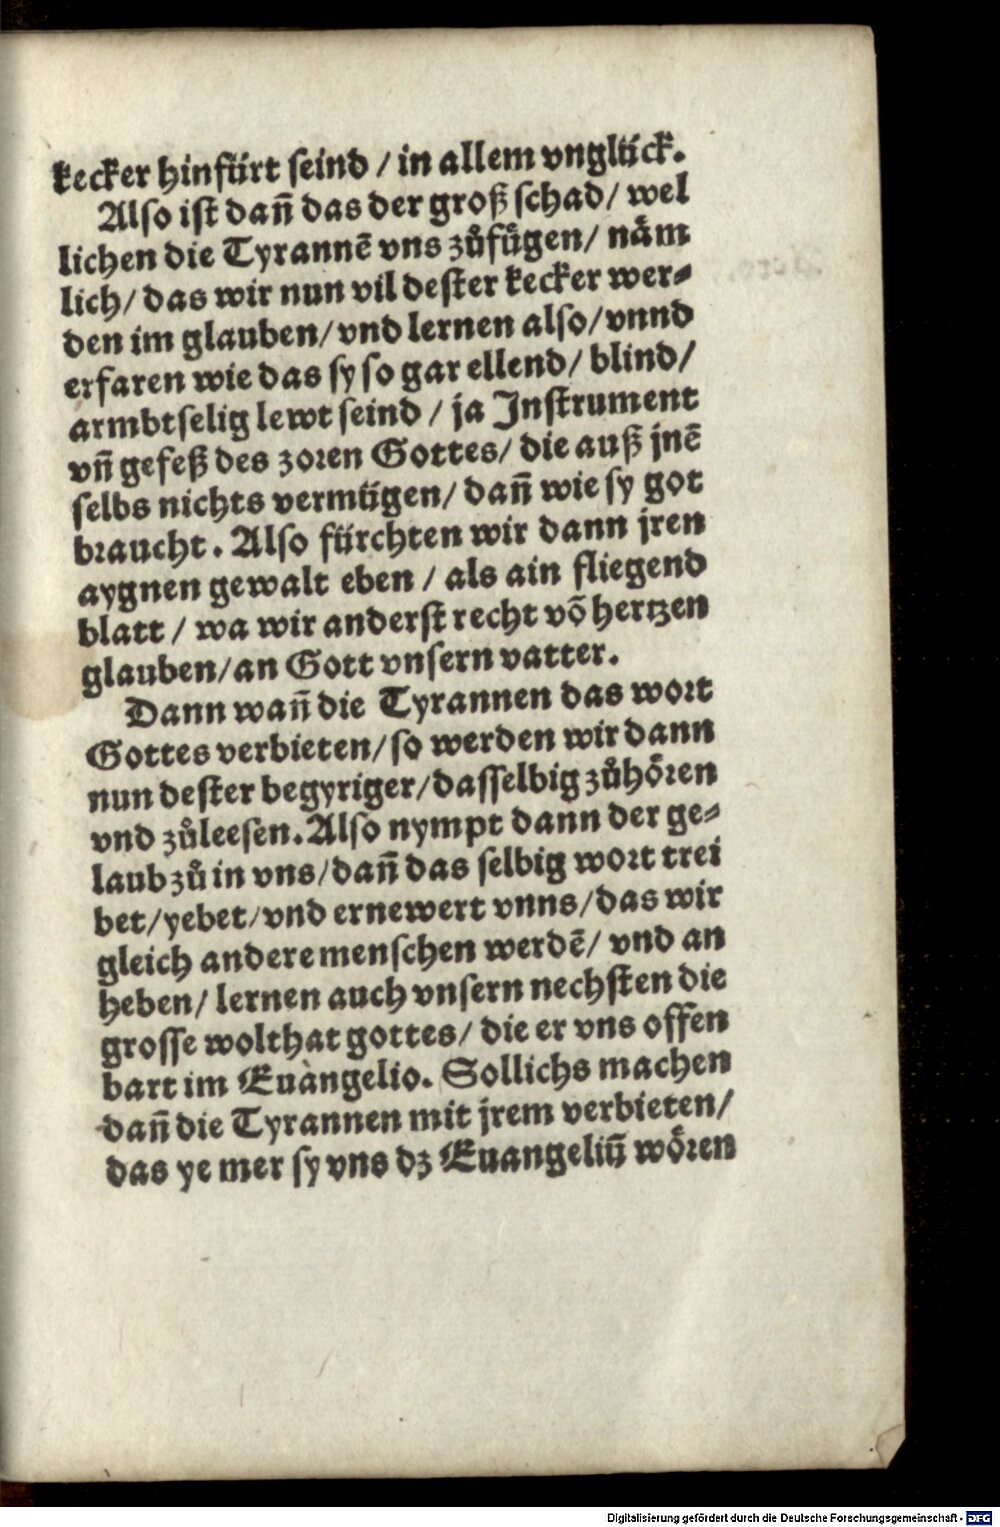 kecker hinfürt seind / in allem vnglück.
Also ist dañ das der groß schad / wel
lichen die Tyrannē vns zůfügen / näm
lich / das wir nun vil dester kecker wer⸗
den im glauben / vnd lernen also / vnnd
erfaren wie das sy so gar ellend / blind /
armbtselig lewt seind / ja Instrument
vñ gefeß des zoren Gottes / die auß jnē
selbs nichts vermügen / dañ wie sy got
braucht. Also fürchten wir dann jren
aygnen gewalt eben / als ain fliegend
blatt / wa wir anderst recht võ hertzen
glauben / an Gott vnsern vatter.
Dann wañ die Tyrannen das wort
Gottes verbieten / so werden wir dann
nun dester begyriger / dasselbig zůhören
vnd zůleesen. Also nympt dann der ge⸗
laub zů in vns / dañ das selbig wort trei
bet / yebet / vnd ernewert vnns / das wir
gleich andere menschen werdē / vnd an
heben / lernen auch vnsern nechsten die
grosse wolthat gottes / die er vns offen
bart im Euàngelio. Sollichs machen
dañ die Tyrannen mit jrem verbieten /
das ye mer sy vns dz Euangeliū wören
Digitalisierung gefördert durch die Deutsche Forschungsgemeinschaft - DFG